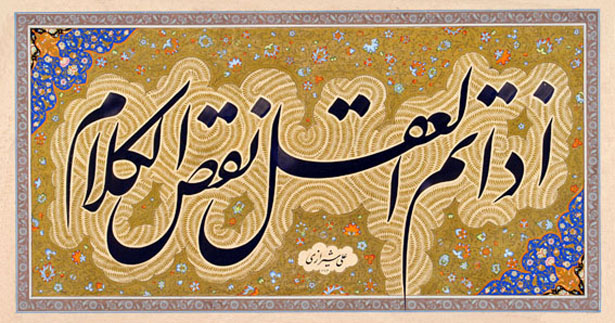 اذا تم العقل نقص الکلام
علی شیرازی